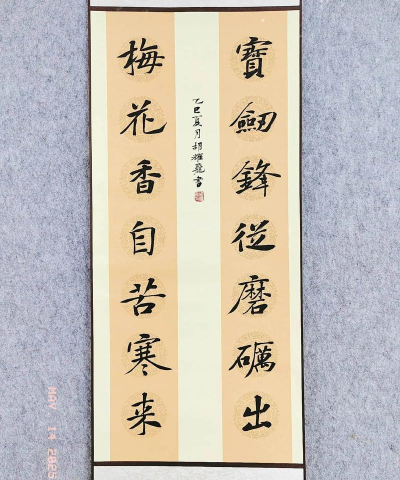 寶劒鋒從磨礪出
梅花香自苦寒来
乙巳夏月胡耀龍書
MAY 14 2025